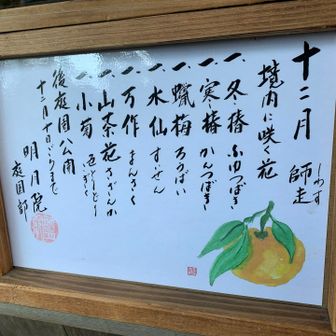 十二月 師走
しわす
境内に咲く花
一、冬椿 ふゆつばき
一、寒椿 かんつばき
一、蝋梅 ろうばい
一、水仙 すいせん
一、万作 まんさく
一、山茶花 さざんか
一、小菊 こぎく
後庭園公開
十二月十日ごろまで
明月院
庭園部